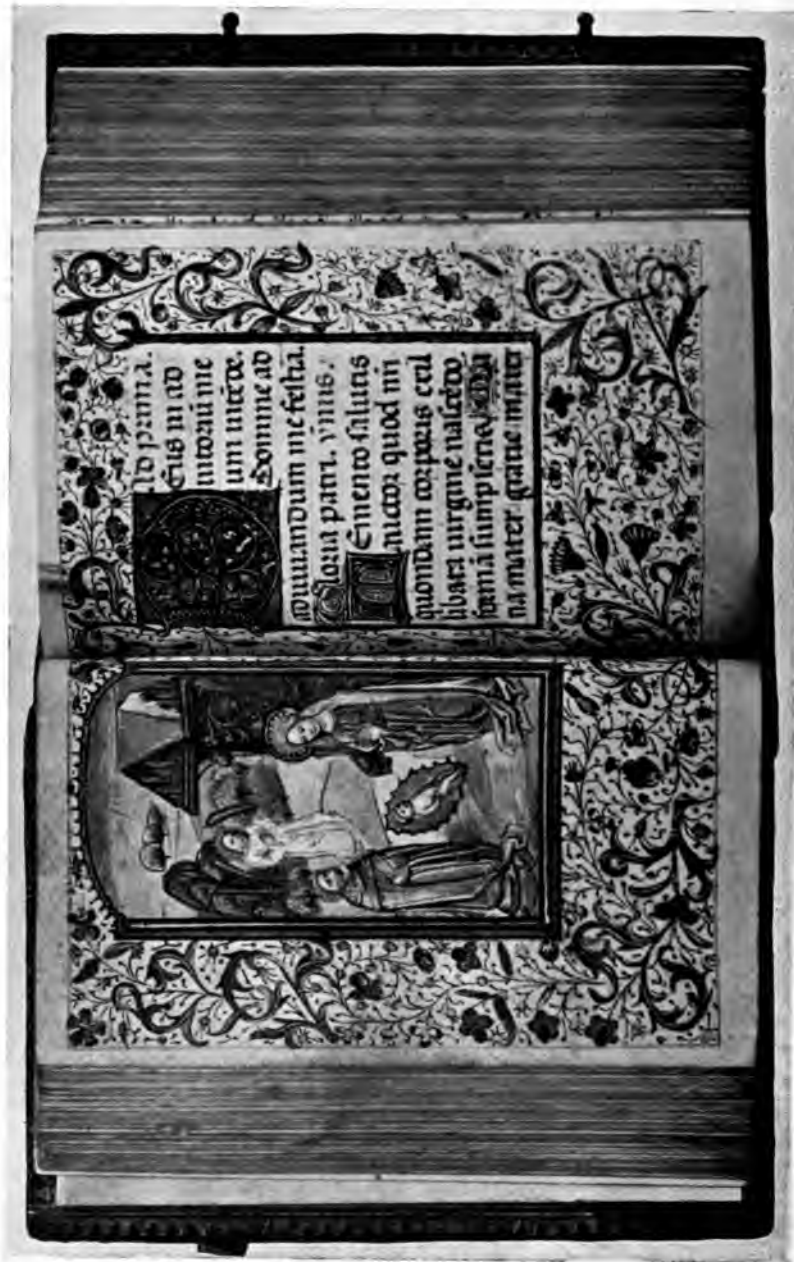 Ad prima.
DEus in ad
iutoriū me
um intēde.
Domine ad
adiuuandum me festīa.
Gloria patri. ymnus.
MEmento salutis
auctor quod nrī
quondam corporis exil
libata uirgine nascēdo
formā sumpseris.
na mater gratie mater